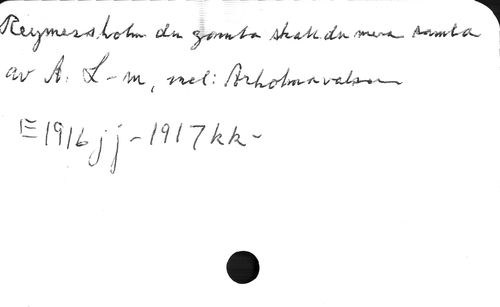 Reymersholm du gamla skall du mera samla
av A. L-m, mel: Arholmavalsen
E 1916 jj - 1917 kk -